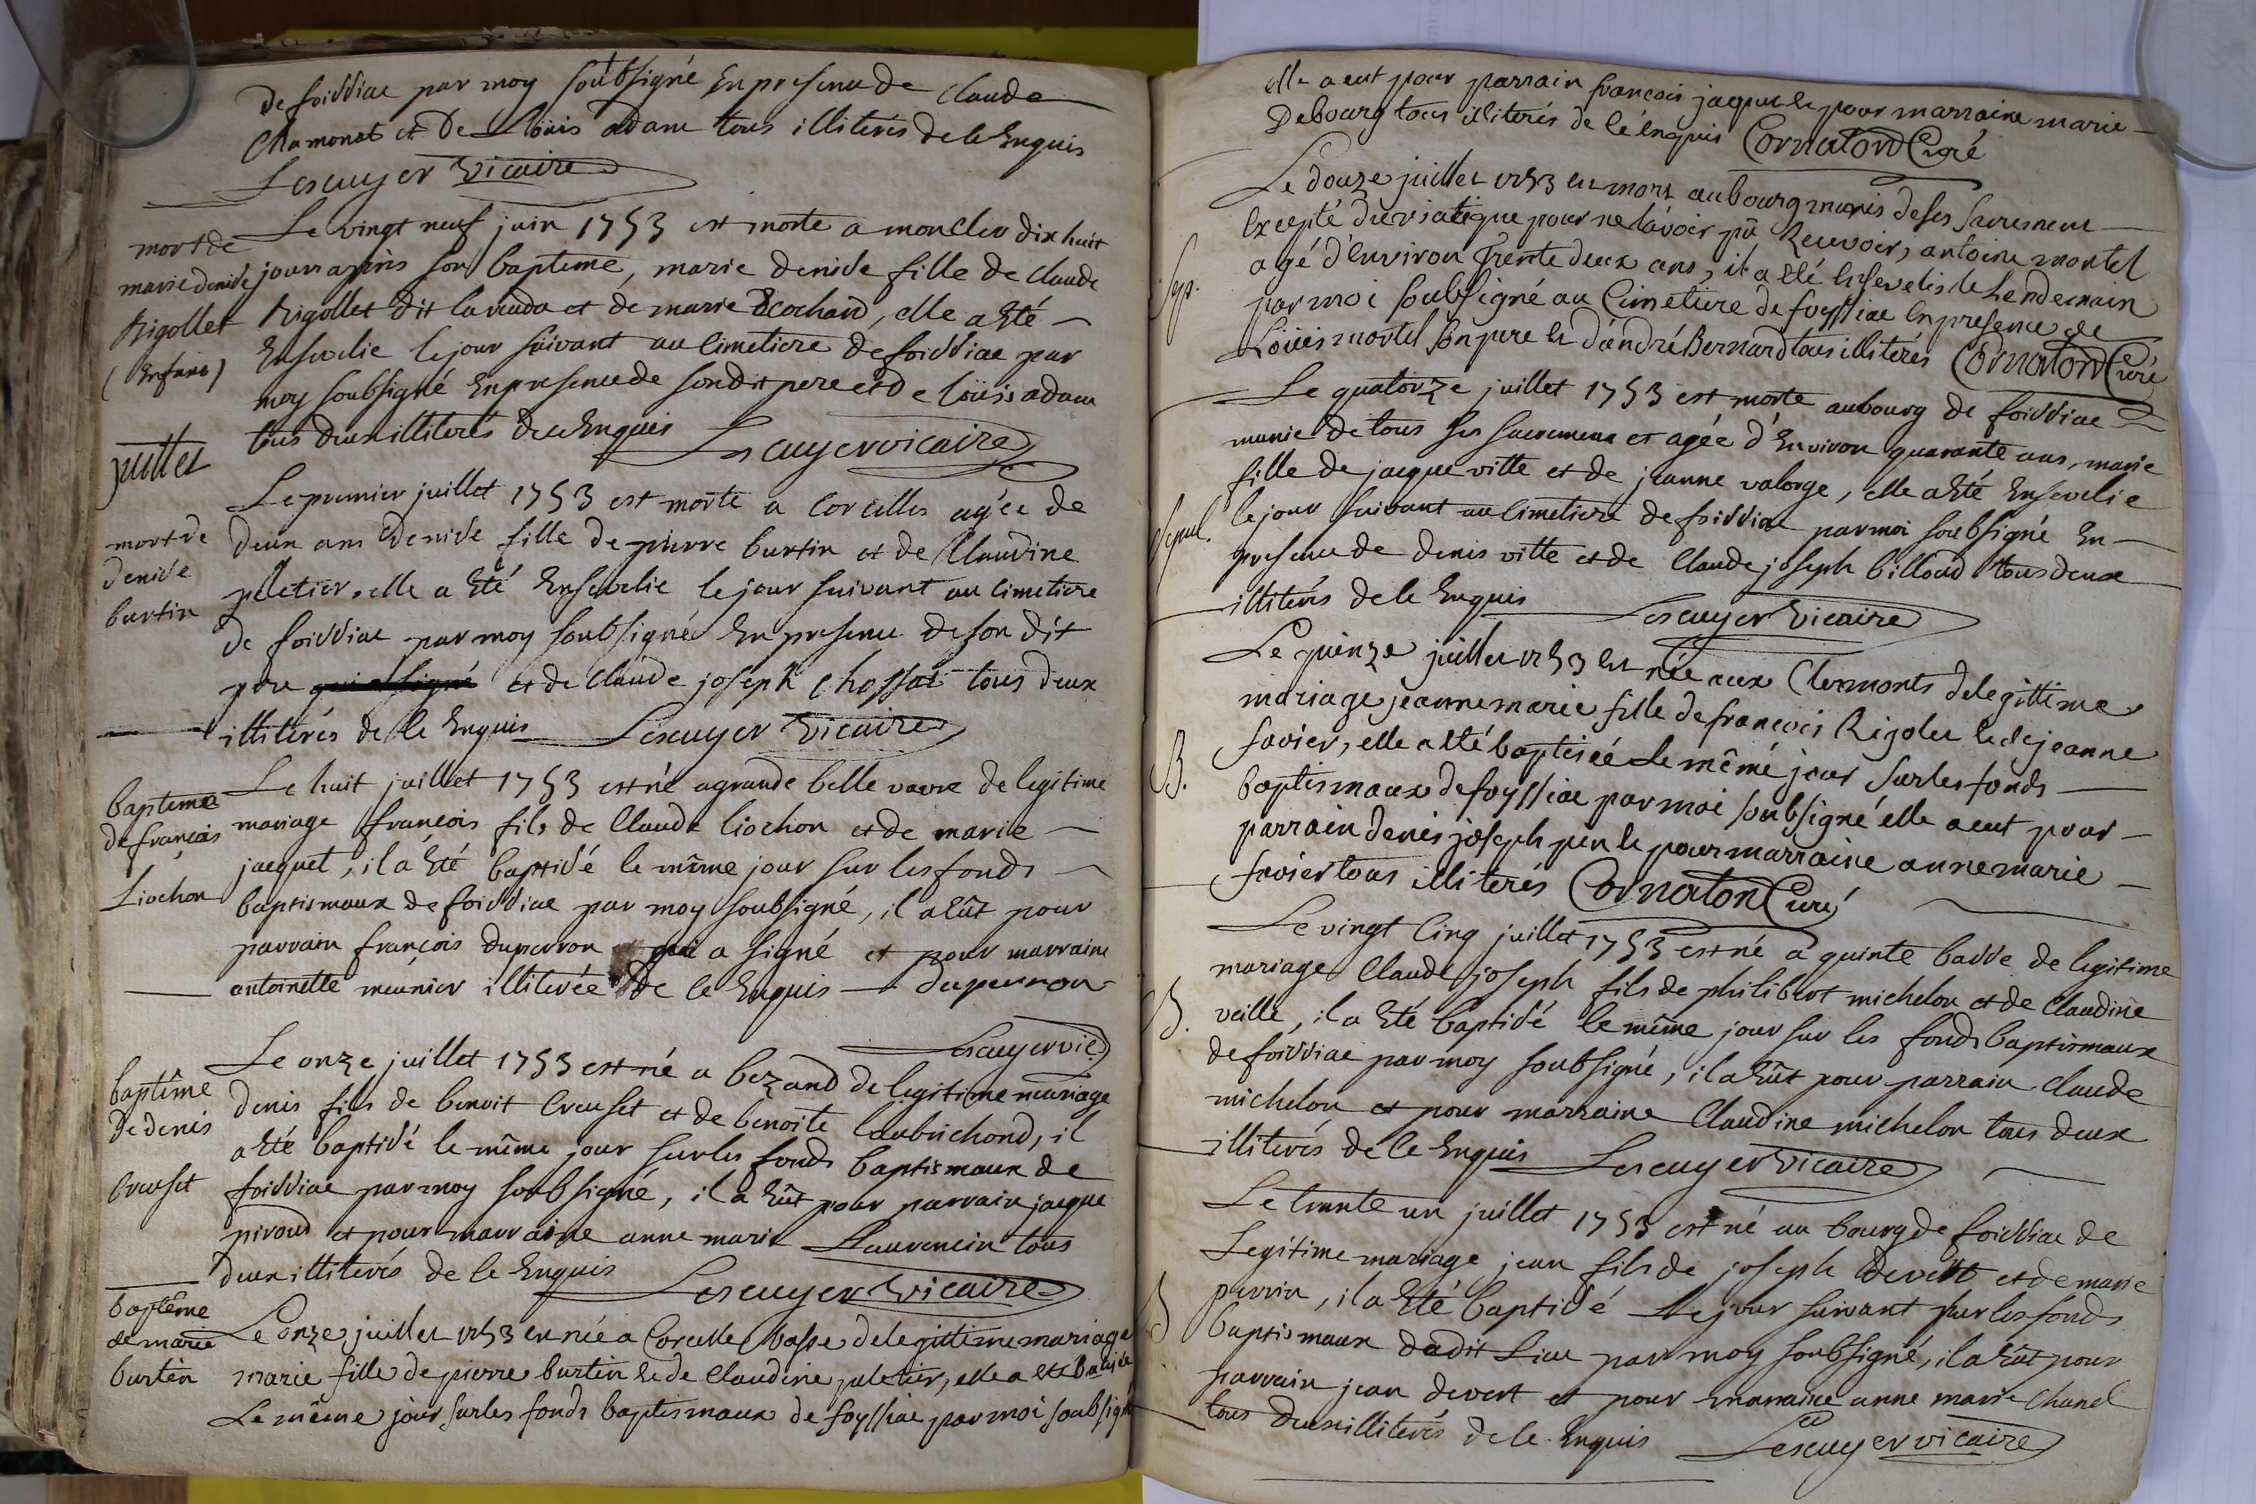 de foissiac par moy soubsigné En presence de Claude
Chamonat et De Loüis adam tous illiterés de le Enquis
Lescuyer vicaire
mort de
marie denise
Rigollet
(Enfans)
Le vingt neuf juin 1753 est morte a monclier dix huit
jours apres son bapteme, marie denise fille de Claude
Rigollet dit et de marie Cochard, elle a Eté
Ensevelie le jour suivant au Cimetiere de foissiac par
moy soubsigné En presence de son dit pere et de loüis adam
tous deux illiterés de ce Enquis Lescuyer vicaire
juillet
mort de
denise
burtin
Le premier juillet 1753 est morte a Corcelles agée de
deux ans denise fille de pierre burtin et de Claudine
peletier. elle a Eté Ensevelie le jour suivant au Cimetiere
de foissiac par moy soubsigné En presence de son dit
pere qui a signé et de Claude joseph Chossat tous deux
illiterés de le Enquis Lescuyer vicaire
bapteme
de françois
Liochon
Le huit juillet 1753 est né a grande belle vavre de legitime
mariage françois fils de Claude liochon et de marie
jacquet, il a Eté baptisé le même jour sur les fonds
baptismaux de foissiac par moy soubsigné, il a Eût pour
parrain françois duperron qui a signé et pour marraine
antoinette meunier illiterée de ce Enquis Duperron
Lescuyer vic.
baptême
de denis
Creuset
Le onze juillet 1753 est né a bezand de legitime mariage
denis fils de benoit Creuset et de benoite Laubrichond, il
a Eté baptisé le même jour sur les fonds baptismaux de
foissiac par moy soubsigné, il a Eût pour parrain jacque
piroud et pour marraine anne marie Laurencin tous
deux illiterés de le Enquis Lescuyer vicaire
baptême
de marie
burtin
Le onze juillet 1753 est née a Corcelle basse de legittime mariage
marie fille de pierre burtin et de Claudine peletier, elle a été batisée
Le même jour sur les fonds baptismaux de foyssiac par moi soubsigné
elle a eut pour parrain françois jaquet et pour marraine marie
Debourg tous illiterés de le enquis Cornaton Curé
Sep.
Le douze juillet 1753 est mort au bourg munis de ses sacremens
excepté du viatique pour ne lavoir pû Recevoir, antoine mortel
agé d'Environ Trente deux ans, il a été Ensevelis le Lendemain
par moi soubsigné au Cimetiere de foyssiac En presence de
Loüis mortel son pere et d'andré Bernard tous illiterés Cornaton Curé
Sepul.
Le quatorze juillet 1753 est morte au bourg de foissiac
munie de tous ses sacremens et agée d'Environ quarante ans, marie
fille de jacque ville et de jeanne valorge, elle a Eté Ensevelie
le jour suivant au Cimetiere de foissiac par moi soubsigné En
presence de denis ville et de Claude joseph billoud tous deux
illiterés de le Enquis Lescuyer vicaire
B.
Le quinze juillet 1753 est née aux Clermonts de legittime
mariage jeanne marie fille de françois Rigolet et de jeanne
favier, elle a été baptisée Le même jour sur les fonds
baptismaux de foyssiac par moi soubsigné elle a eut pour
parrain denis joseph pin et pour marraine anne marie
favier tous illiterés Cornaton Curé
B.
Le vingt Cinq juillet 1753 est né a quinte basse de legitime
mariage Claude joseph fils de philibert michelon et de Claudine
veille, il a Eté baptisé le même jour sur les fonds baptismaux
de foissiac par moy soubsigné, il a Eût pour parrain Claude
michelon et pour marraine Claudine michelon tous deux
illiterés de le Enquis Lescuyer vicaire
B
Le trente un juillet 1753 est né au bourg de foissiac de
Legitime mariage jean fils de joseph devert et de marie
perrin, il a Eté baptisé le jour suivant sur les fonds
baptismaux dudit Lieu par moy soubsigné, il a Eût pour
parrain jean devert et pour marraine anne marie Chanel
tous deux illiterés de le Enquis Lescuyer vicaire